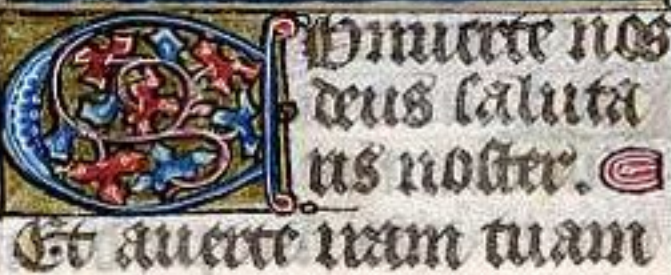 Conuerte nos
deus saluta
ris noster.
Et auerte iram tuam